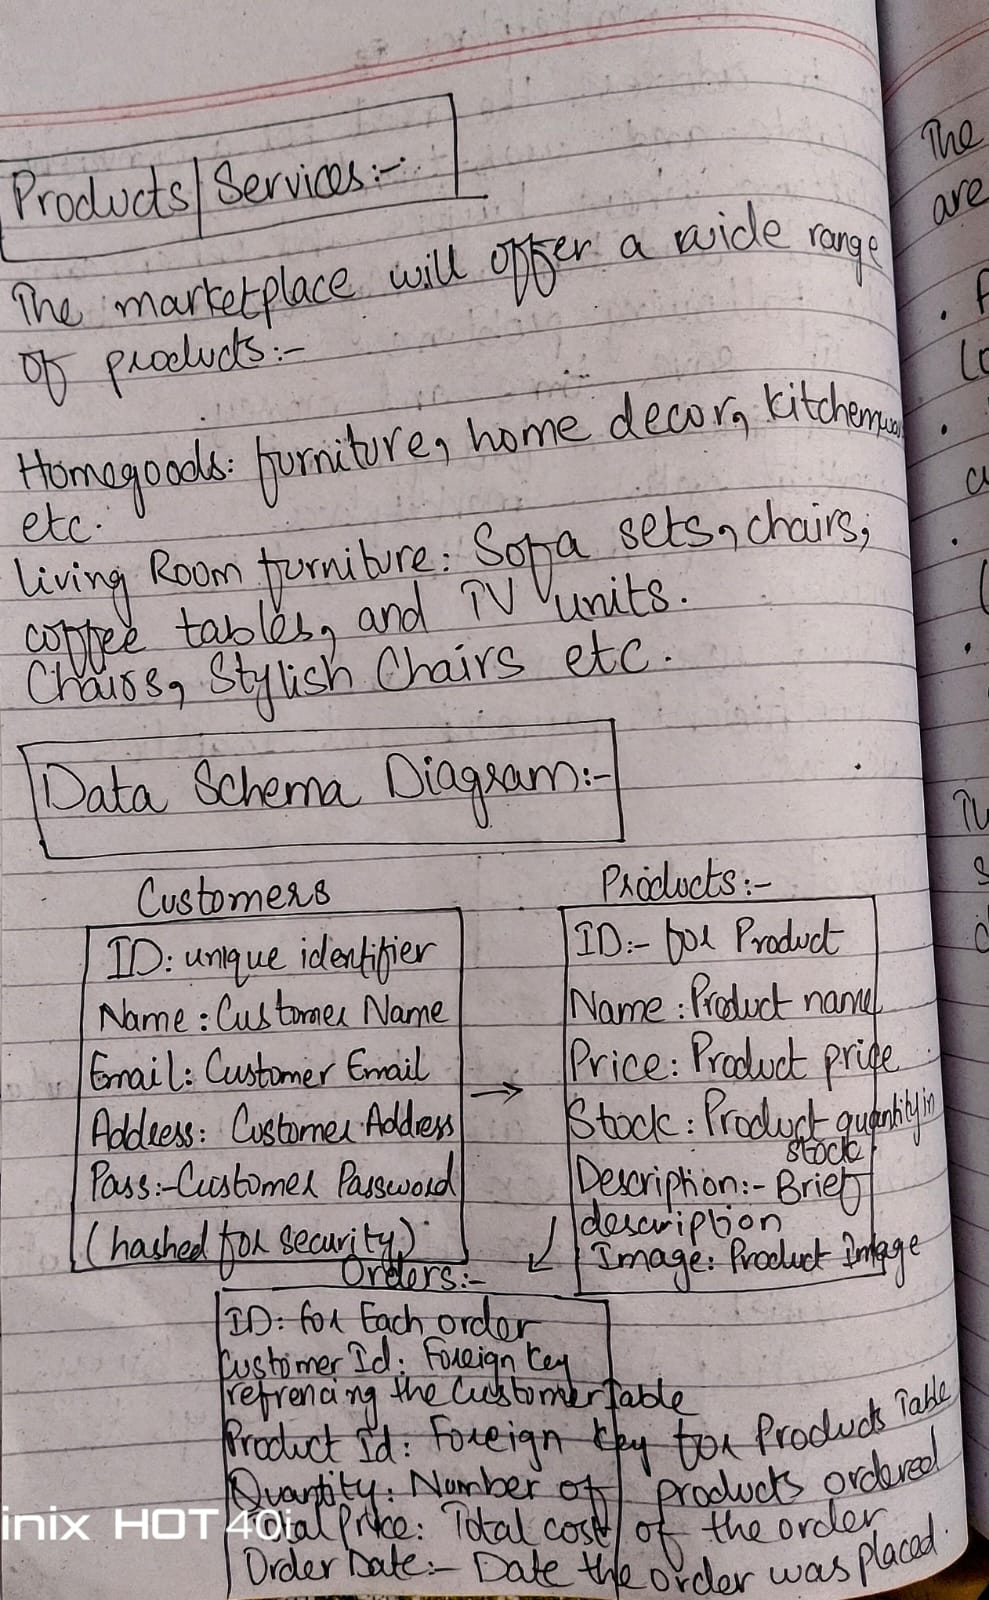 Products/Services:-
The marketplace will offer a wide range
of products:-
Homegoods: furniture, home decor, kitchenwar
etc.
Living Room furniture: Sofa sets, chairs,
coffee tables, and TV units.
Chairs, Stylish Chairs etc.
Data Schema Diagram:-
Customers
ID: unique identifier
Name: Customer Name
Email: Customer Email
Address: Customer Address
Pass:- Customer Password
(hashed for security)
Products:-
ID:- for Product
Name: Product name
Price: Product price
Stock: Product quantity in
stock
Description:- Brief
description
Image: Product Image
Orders:-
ID: for Each order
Customer Id: Foreign key
refrencing the Customer Table
Product Id: Foreign key for Products Table
Quantity: Number of products ordered
Total Price: Total cost of the order
Order Date:- Date the order was placed.
inix HOT 40i
The
are